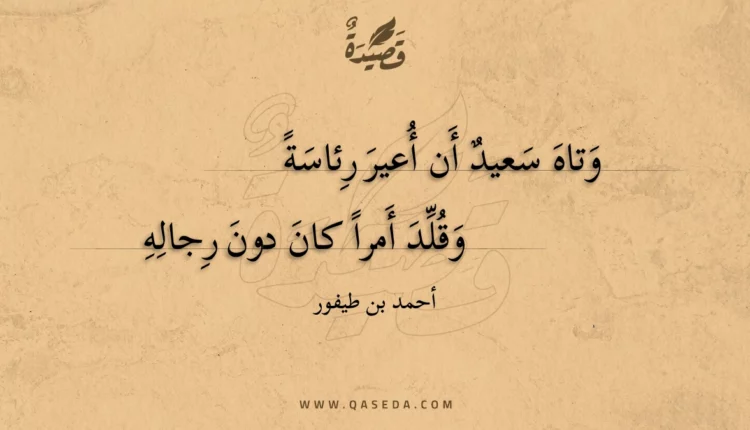 قَصِيدَةٌ
وَتاهَ سَعيدٌ أَن أُعيرَ رِئاسَةً
وَقُلِّدَ أَمراً كانَ دونَ رِجالِهِ
أحمد بن طيفور
WWW.QASEDA.COM